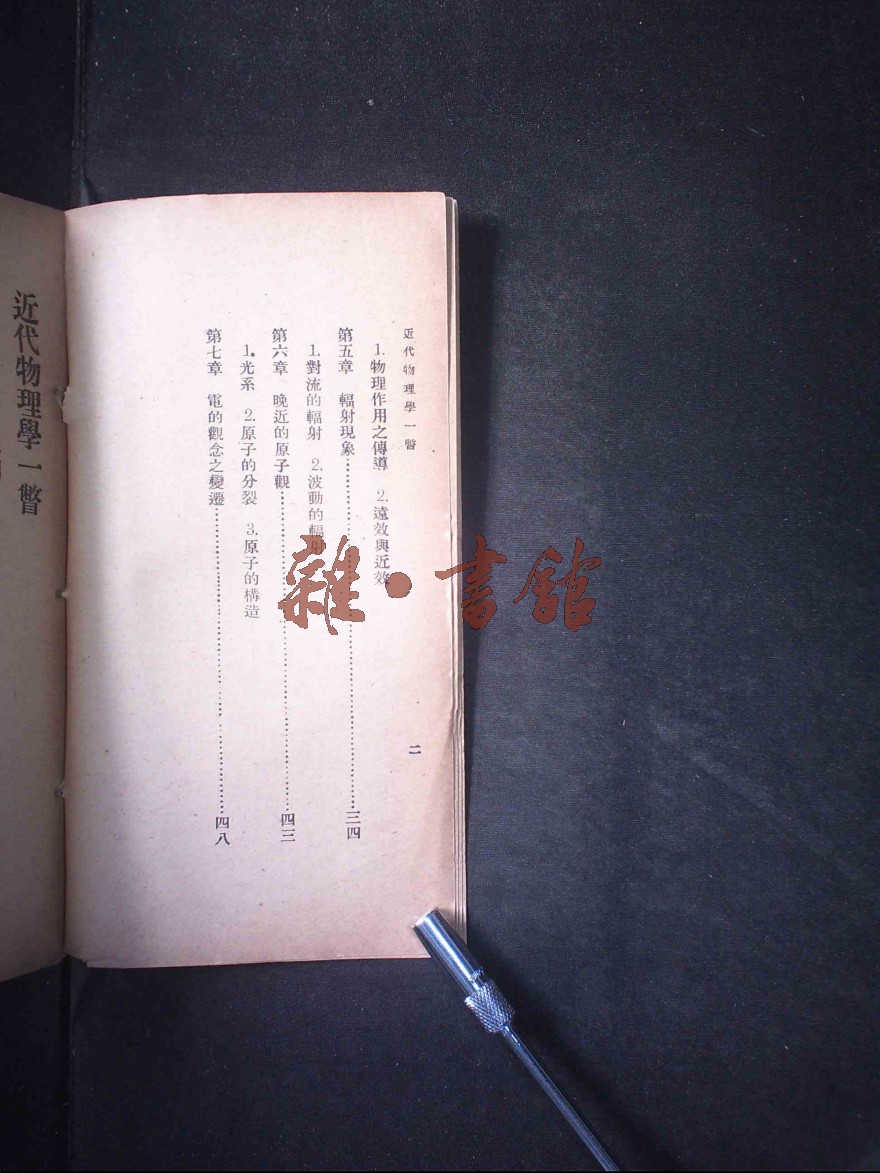 近代物理學一瞥
二
1. 物理作用之傳導 2. 遠效與近效
第五章 輻射現象………………三四
1. 對流的輻射 2. 波動的輻射
第六章 晚近的原子觀………………四三
1. 光系 2. 原子的分裂 3. 原子的構造
第七章 電的觀念之變遷………………四八
近代物理學一瞥
雜·書館